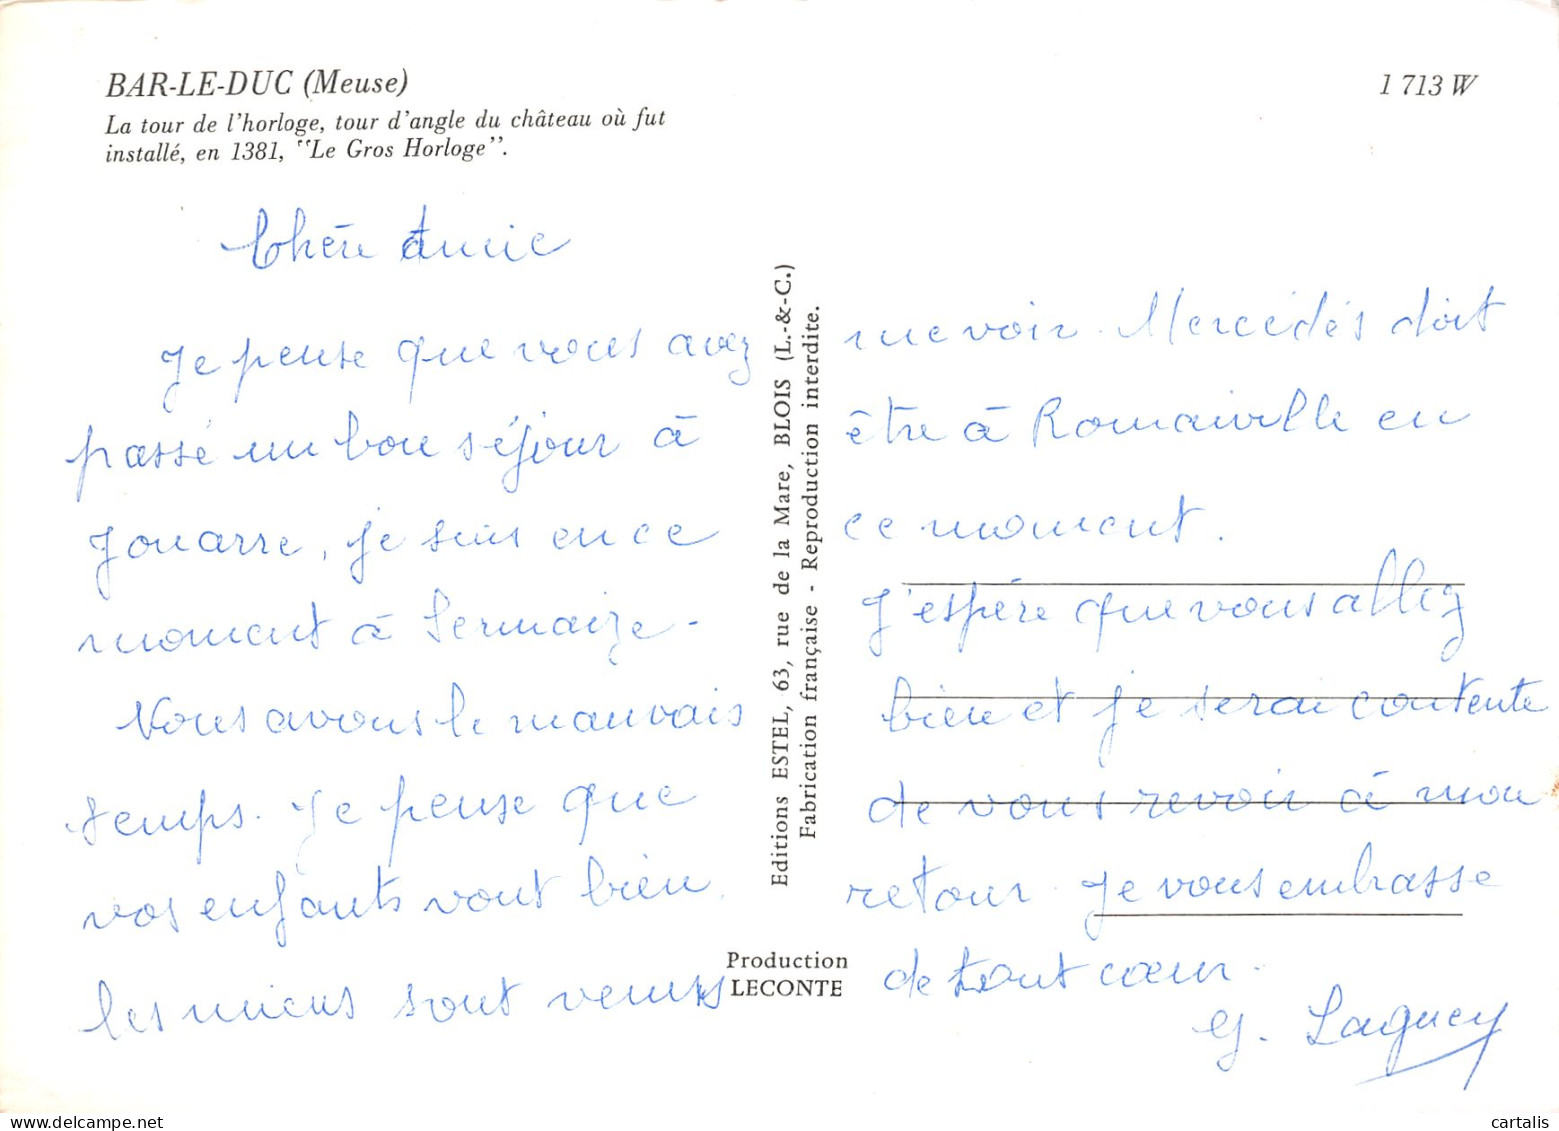 BAR-LE-DUC (Meuse)
La tour de l'horloge, tour d'angle du château où fut
installé, en 1381, "Le Gros Horloge".
1 713 W
Chère Amie
Je pense que vous avez
passé un bon séjour à
Jouarre, je suis en ce
moment à Sermaize.
Nous avons le mauvais
temps. Je pense que
vos enfants vont bien.
les miens sont venus
Editions ESTEL, 63, rue de la Mare, BLOIS (L.-&-C.)
Fabrication française - Reproduction interdite.
Production
LECONTE
me voir. Mercédès doit
être à Romainville en
ce moment.
J'espère que vous allez
bien et je serai contente
de vous revoir à mon
retour. Je vous embrasse
de tout cœur.
G. Laguey
cartalis